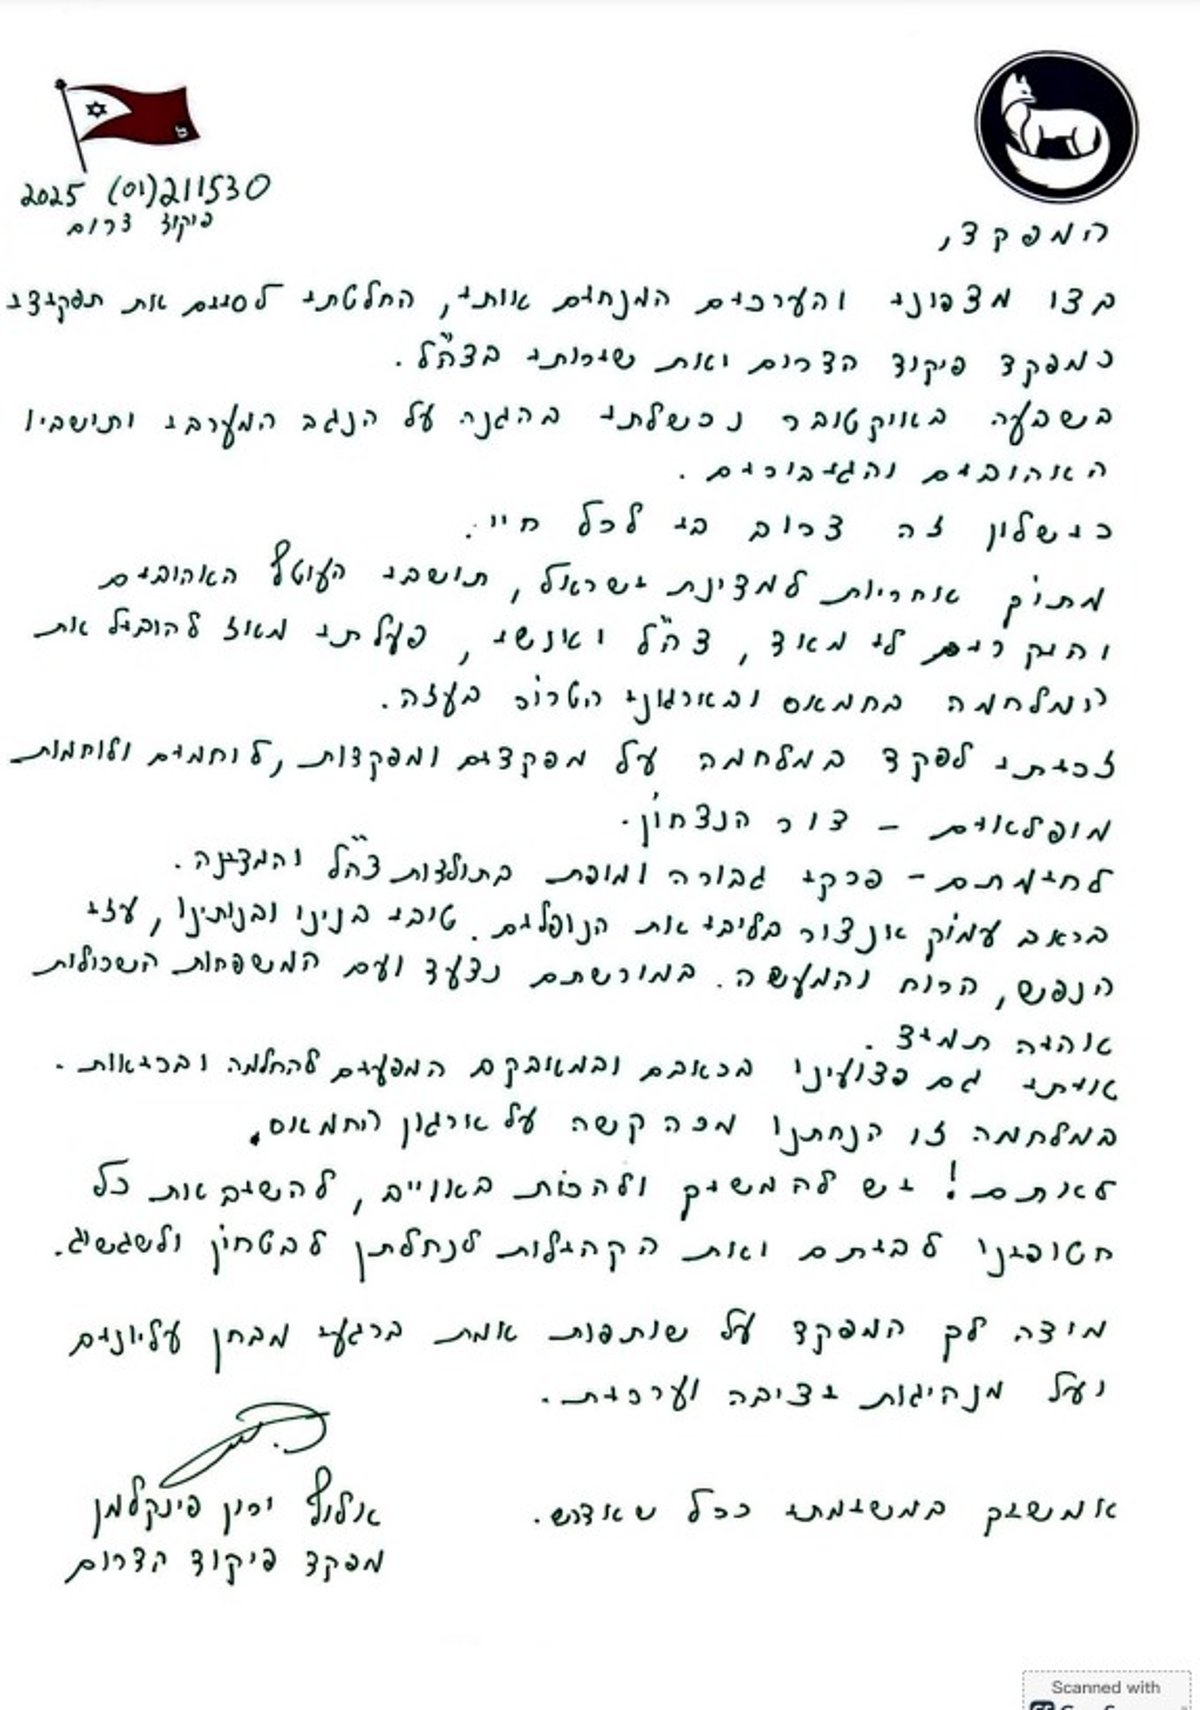 2025 (01)211530
פיקוד דרום
המפקד,
בצו מצפוני והערכים המנחים אותי, החלטתי לסיים את תפקידי
כמפקד פיקוד הדרום ואת שירותי בצה"ל.
בשבעה באוקטובר נכשלתי בהגנה על הנגב המערבי ותושביו
האהובים והגיבורים.
כישלון זה צרוב בי לכל חיי.
מתוך אחריות למדינת ישראל, תושבי העוטף האהובים
והיקרים לי מאד, צה"ל ואנשיו, פעלתי מאז להוביל את
המלחמה בחמאס ובארגוני הטרור בעזה.
זכיתי לפקד במלחמה על מפקדים ומפקדות, לוחמים ולוחמות
מופלאים - דור הנצחון.
לחימתם - פרקי גבורה ומופת בתולדות צה"ל והמדינה.
בכאב עמוק אנצור בליבי את הנופלים. טובי בנינו ובנותינו, עזי
הנפש, הרוח והמעשה. במורשתם נצעד ועם המשפחות השכולות
אהיה תמיד.
איתי גם פצועינו בכאבם ובמאבקם המפעים להחלמה ובריאות.
במלחמה זו הנחתנו מכה קשה על ארגון החמאס.
לא תם! יש להמשיך ולהכות באוייב, להשיב את כל
חטופינו לביתם ואת הקהילות לנחלתן לבטחון ולשגשוג.
מודה לך המפקד על שותפות אמת ברגעי מבחן עליונים
ועל מנהיגות יציבה וערכית.
אמשיך במשימתי ככל שאדרש.
אלוף ירון פינקלמן
מפקד פיקוד הדרום
Scanned with